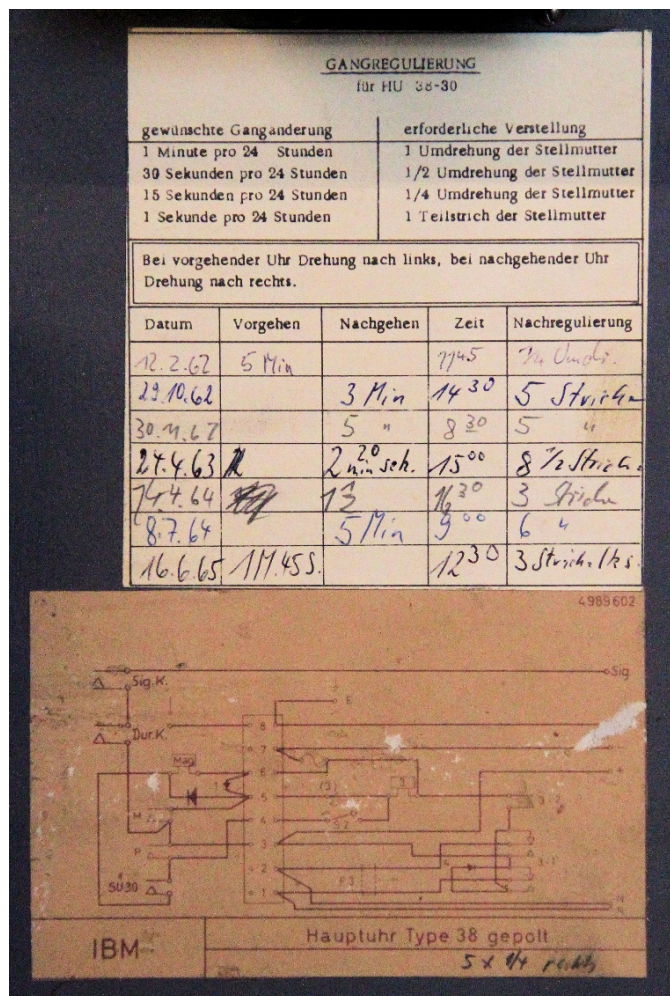 GANGREGULIERUNG
für HU 38-30
gewünschte Ganganderung erforderliche Verstellung
1 Minute pro 24 Stunden 1 Umdrehung der Stellmutter
30 Sekunden pro 24 Stunden 1/2 Umdrehung der Stellmutter
15 Sekunden pro 24 Stunden 1/4 Umdrehung der Stellmutter
1 Sekunde pro 24 Stunden 1 Teilstrich der Stellmutter
Bei vorgehender Uhr Drehung nach links, bei nachgehender Uhr
Drehung nach rechts.
Datum Vorgehen Nachgehen Zeit Nachregulierung
12.2.62 5 Min 1145
29.10.62 3 Min 14 30 5 Striche
5 " 8 30 5 "
24.4.63 2 min 20 sek. 15 00 8 1/2 Strich.
14.4.64 3 Striche
8.7.64 5 Min 9 00 6 "
16.6.65 1M.45S. 12 30 3 Strich. lks.
4989602
Sig.
Sig.K.
E
Dur.K.
8
7
Mag
6
+
5
(3)
4
M
S2
3
P
3-1
2
F3
SU30
1
N
IBM
Hauptuhr Type 38 gepolt
5 x 1/4 rechts